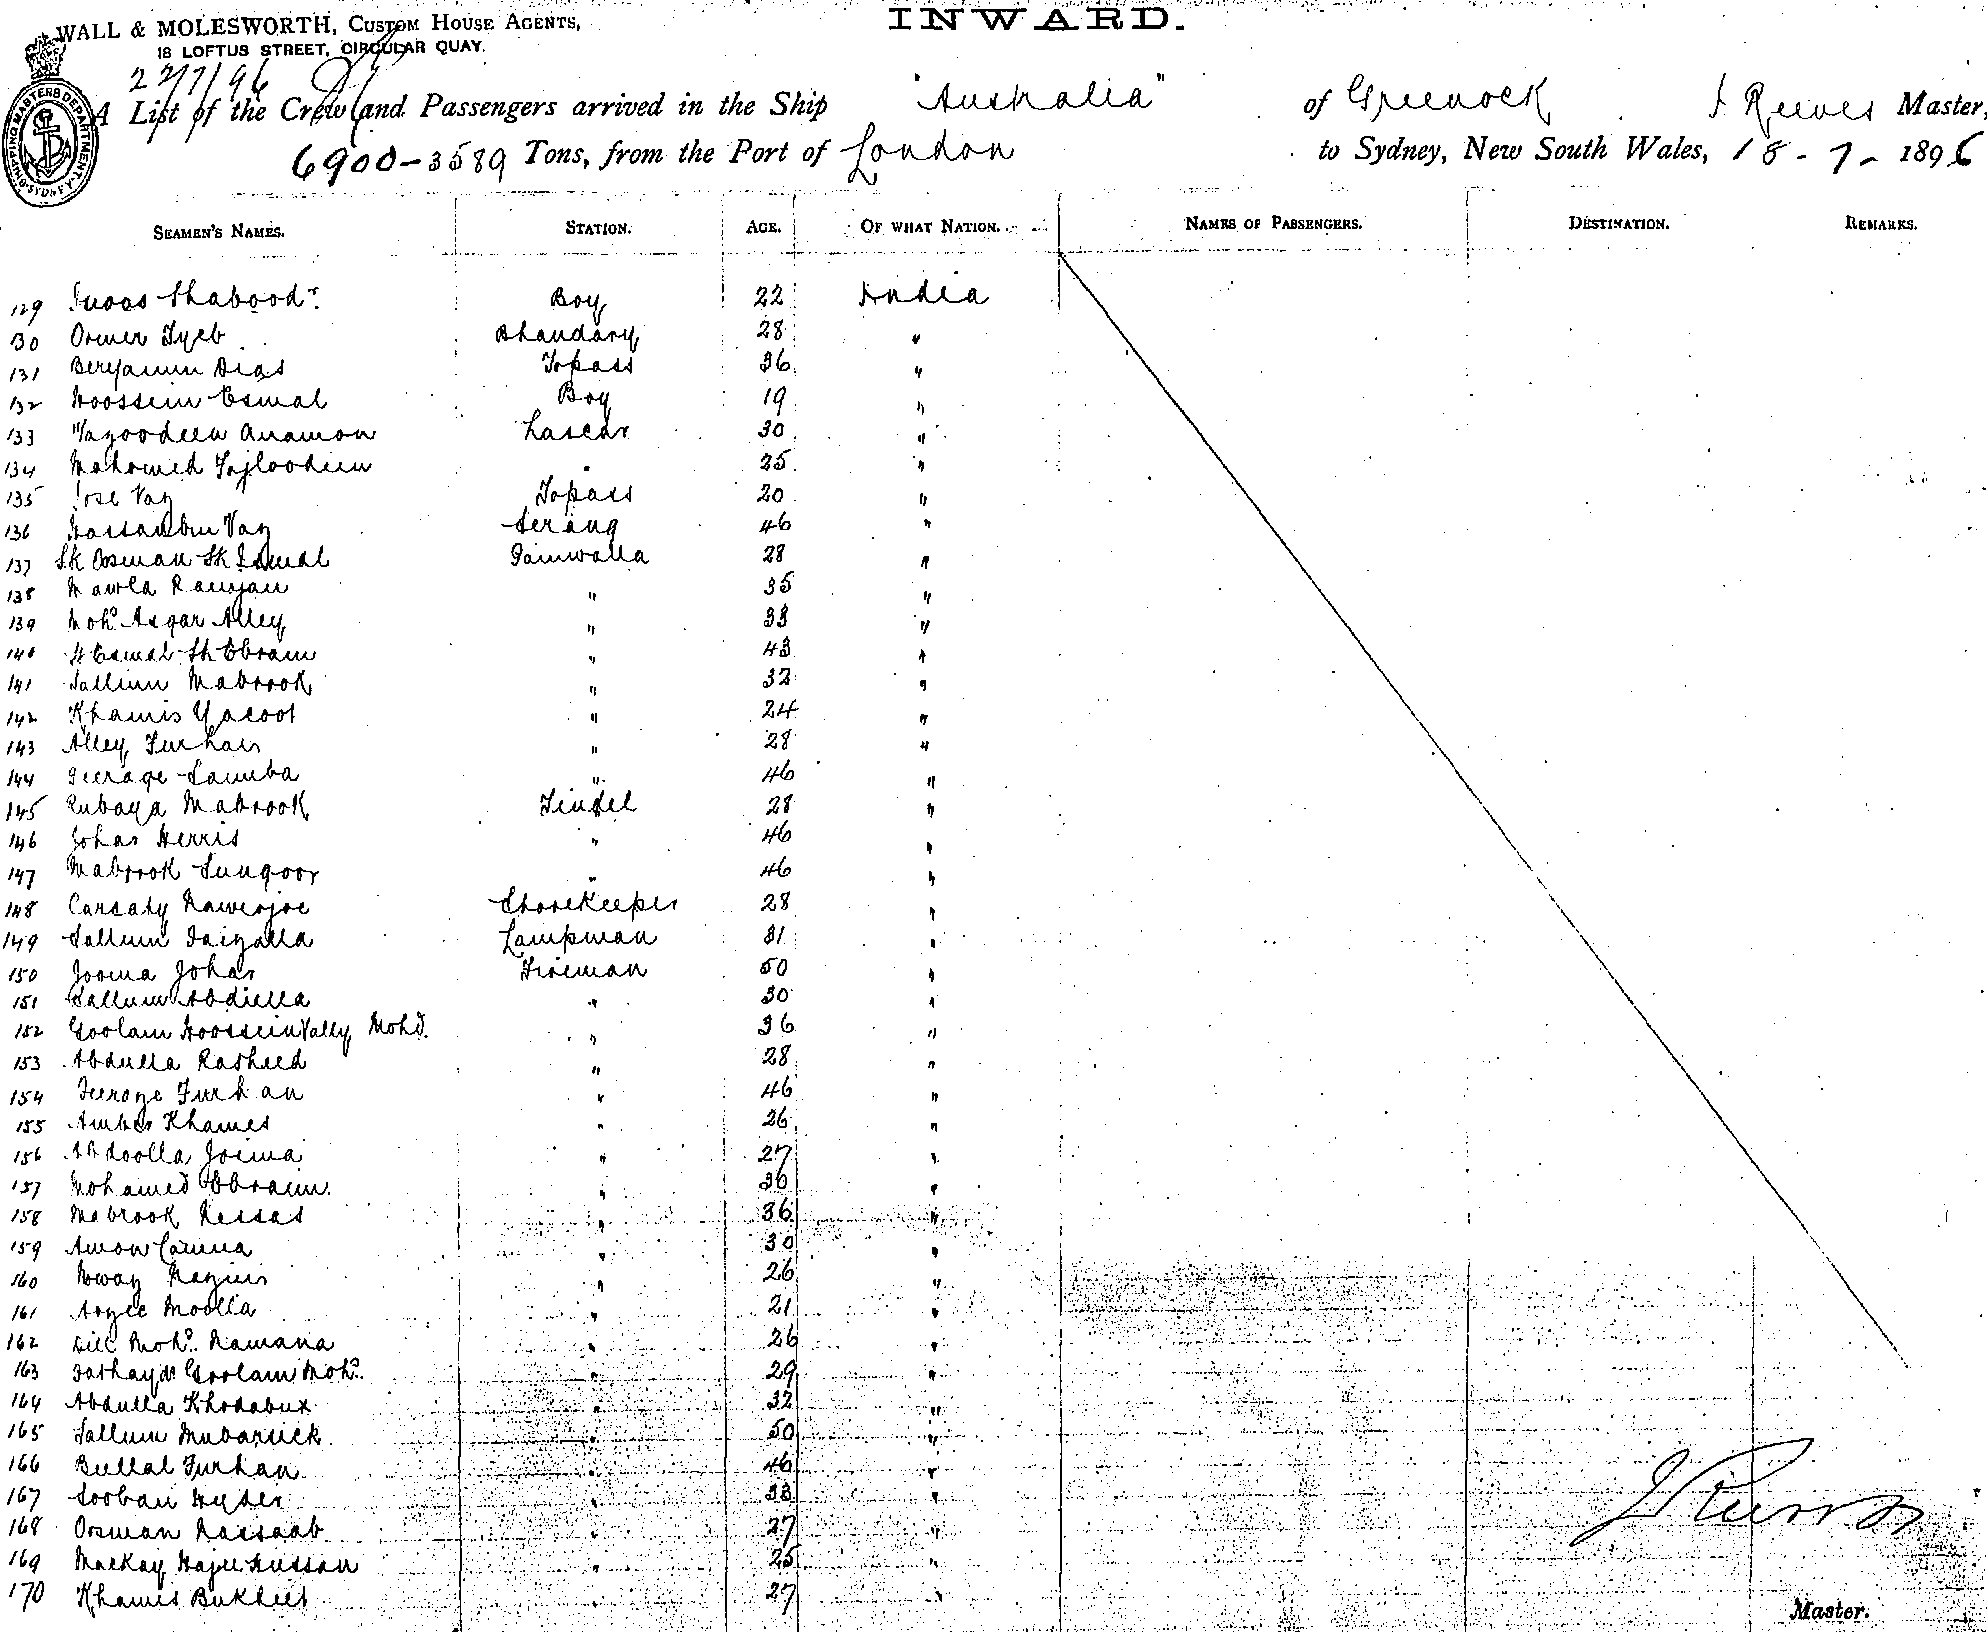 INWARD.
WALL & MOLESWORTH, CUSTOM HOUSE AGENTS,
18 LOFTUS STREET, CIRCULAR QUAY.
22/7/96
SHIPPING MASTERS DEPARTMENT SYDNEY
A List of the Crew and Passengers arrived in the Ship "Australia" of Greenock J Reeves Master,
6900-3589 Tons, from the Port of London to Sydney, New South Wales, 18-7-1896
SEAMEN'S NAMES. STATION. AGE. OF WHAT NATION. NAMES OF PASSENGERS. DESTINATION. REMARKS.
129 Boy 22 India
130 Omer Tyeb Bhandary 28 "
131 Benjamin Dias Topass 36 "
132 Hoossein Esmal Boy 19 "
133 Lascar 30 "
134 Mahomed " 25 "
135 Jose Vaz Topass 20 "
136 Vaz Serang 46 "
137 Sk Oosman Sk Ismal 28 "
138 Mawla Ramjan " 35 "
139 Mohd. Asgar Alley " 33 "
140 Sk Esmal Sk Ebram " 43 "
141 Sallim Mabrook " 32 "
142 Khamis Yacoot " 24 "
143 Alley Furhan " 28 "
144 " 46 "
145 Rubaya Mabrook Tindel 28 "
146 Johar Herris " 46 "
147 Mabrook Sungoor " 46 "
148 Storekeeper 28 "
149 Sallum Faizalla Lampman 31 "
150 Jooma Johar Fireman 50 "
151 Sallum Abdulla " 30 "
152 Goolam Hoossein Vally Mohd. " 36 "
153 Abdulla Rasheed " 28 "
154 Feeroze Furhan " 46 "
155 Amber Khames " 26 "
156 Abdoolla Jooma " 27 "
157 Mohamed Ebraim. " 36 "
158 Mabrook " 36 "
159 " 30 "
160 " 26 "
161 Moolla " 21 "
162 Dil Mohd. Ramana " 26 "
163 Goolam Mohd. " 29 "
164 Abdulla Khodabux " 32 "
165 Sallum Mubaruck " 50 "
166 Bullal Furhan " 46 "
167 Sooban Hyder " 33 "
168 Oosman " 27 "
169 Mackay Hajee Hussan " 25 "
170 Khamis Bukheet " 27 "
J Reeves
Master.